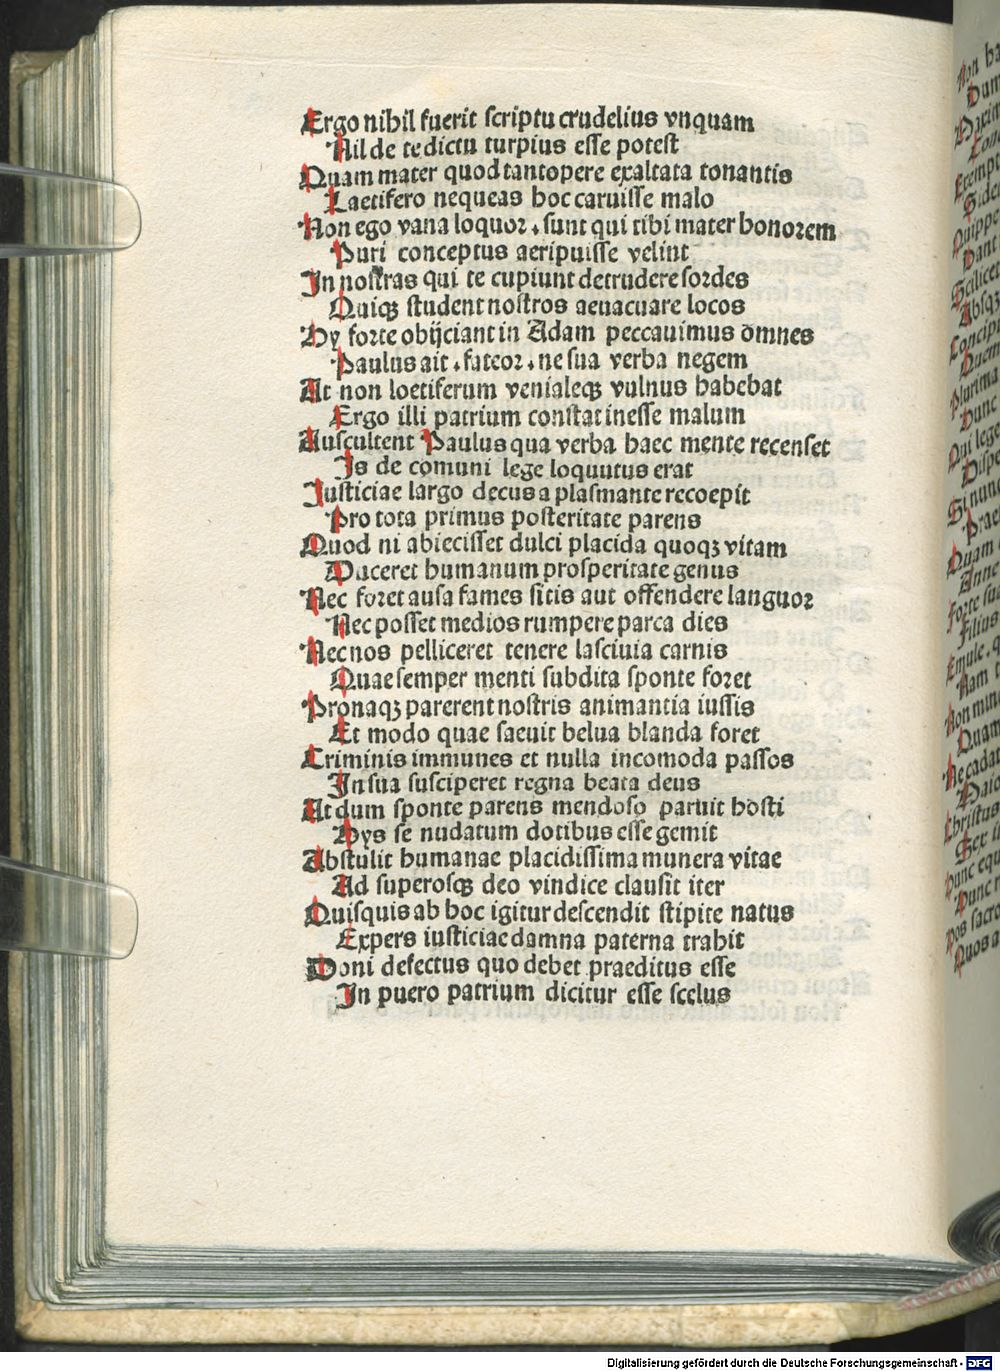 Ergo nihil fuerit scriptu crudelius vnquam
Nil de te dictu turpius esse potest
Quam mater quod tantopere exaltata tonantis
Laetifero nequeas hoc caruisse malo
Non ego vana loquor. sunt qui tibi mater honorem
Puri conceptus aeripuisse velint
In nostras qui te cupiunt detrudere sordes
Quiqꝫ student nostros aeuacuare locos
Hy forte obijciant in Adam peccauimus omnes
Paulus ait. fateor. ne sua verba negem
At non loetiferum venialeqꝫ vulnus habebat
Ergo illi patrium constat inesse malum
Auscultent Paulus qua verba haec mente recenset
Is de comuni lege loquutus erat
Iusticiae largo decus a plasmante recoepit
Pro tota primus posteritate parens
Quod ni abiecisset dulci placida quoqꝫ vitam
Duceret humanum prosperitate genus
Nec foret ausa fames sitis aut offendere languor
Nec posset medios rumpere parca dies
Nec nos pelliceret tenere lasciuia carnis
Quae semper menti subdita sponte foret
Pronaqꝫ parerent nostris animantia iussis
Et modo quae saeuit belua blanda foret
Criminis immunes et nulla incomoda passos
In sua susciperet regna beata deus
At dum sponte parens mendoso paruit hosti
Hys se nudatum dotibus esse gemit
Abstulit humanae placidissima munera vitae
Ad superosqꝫ deo vindice clausit iter
Quisquis ab hoc igitur descendit stipite natus
Expers iusticiae damna paterna trahit
Doni defectus quo debet praeditus esse
In puero patrium dicitur esse scelus
Digitalisierung gefördert durch die Deutsche Forschungsgemeinschaft - DFG